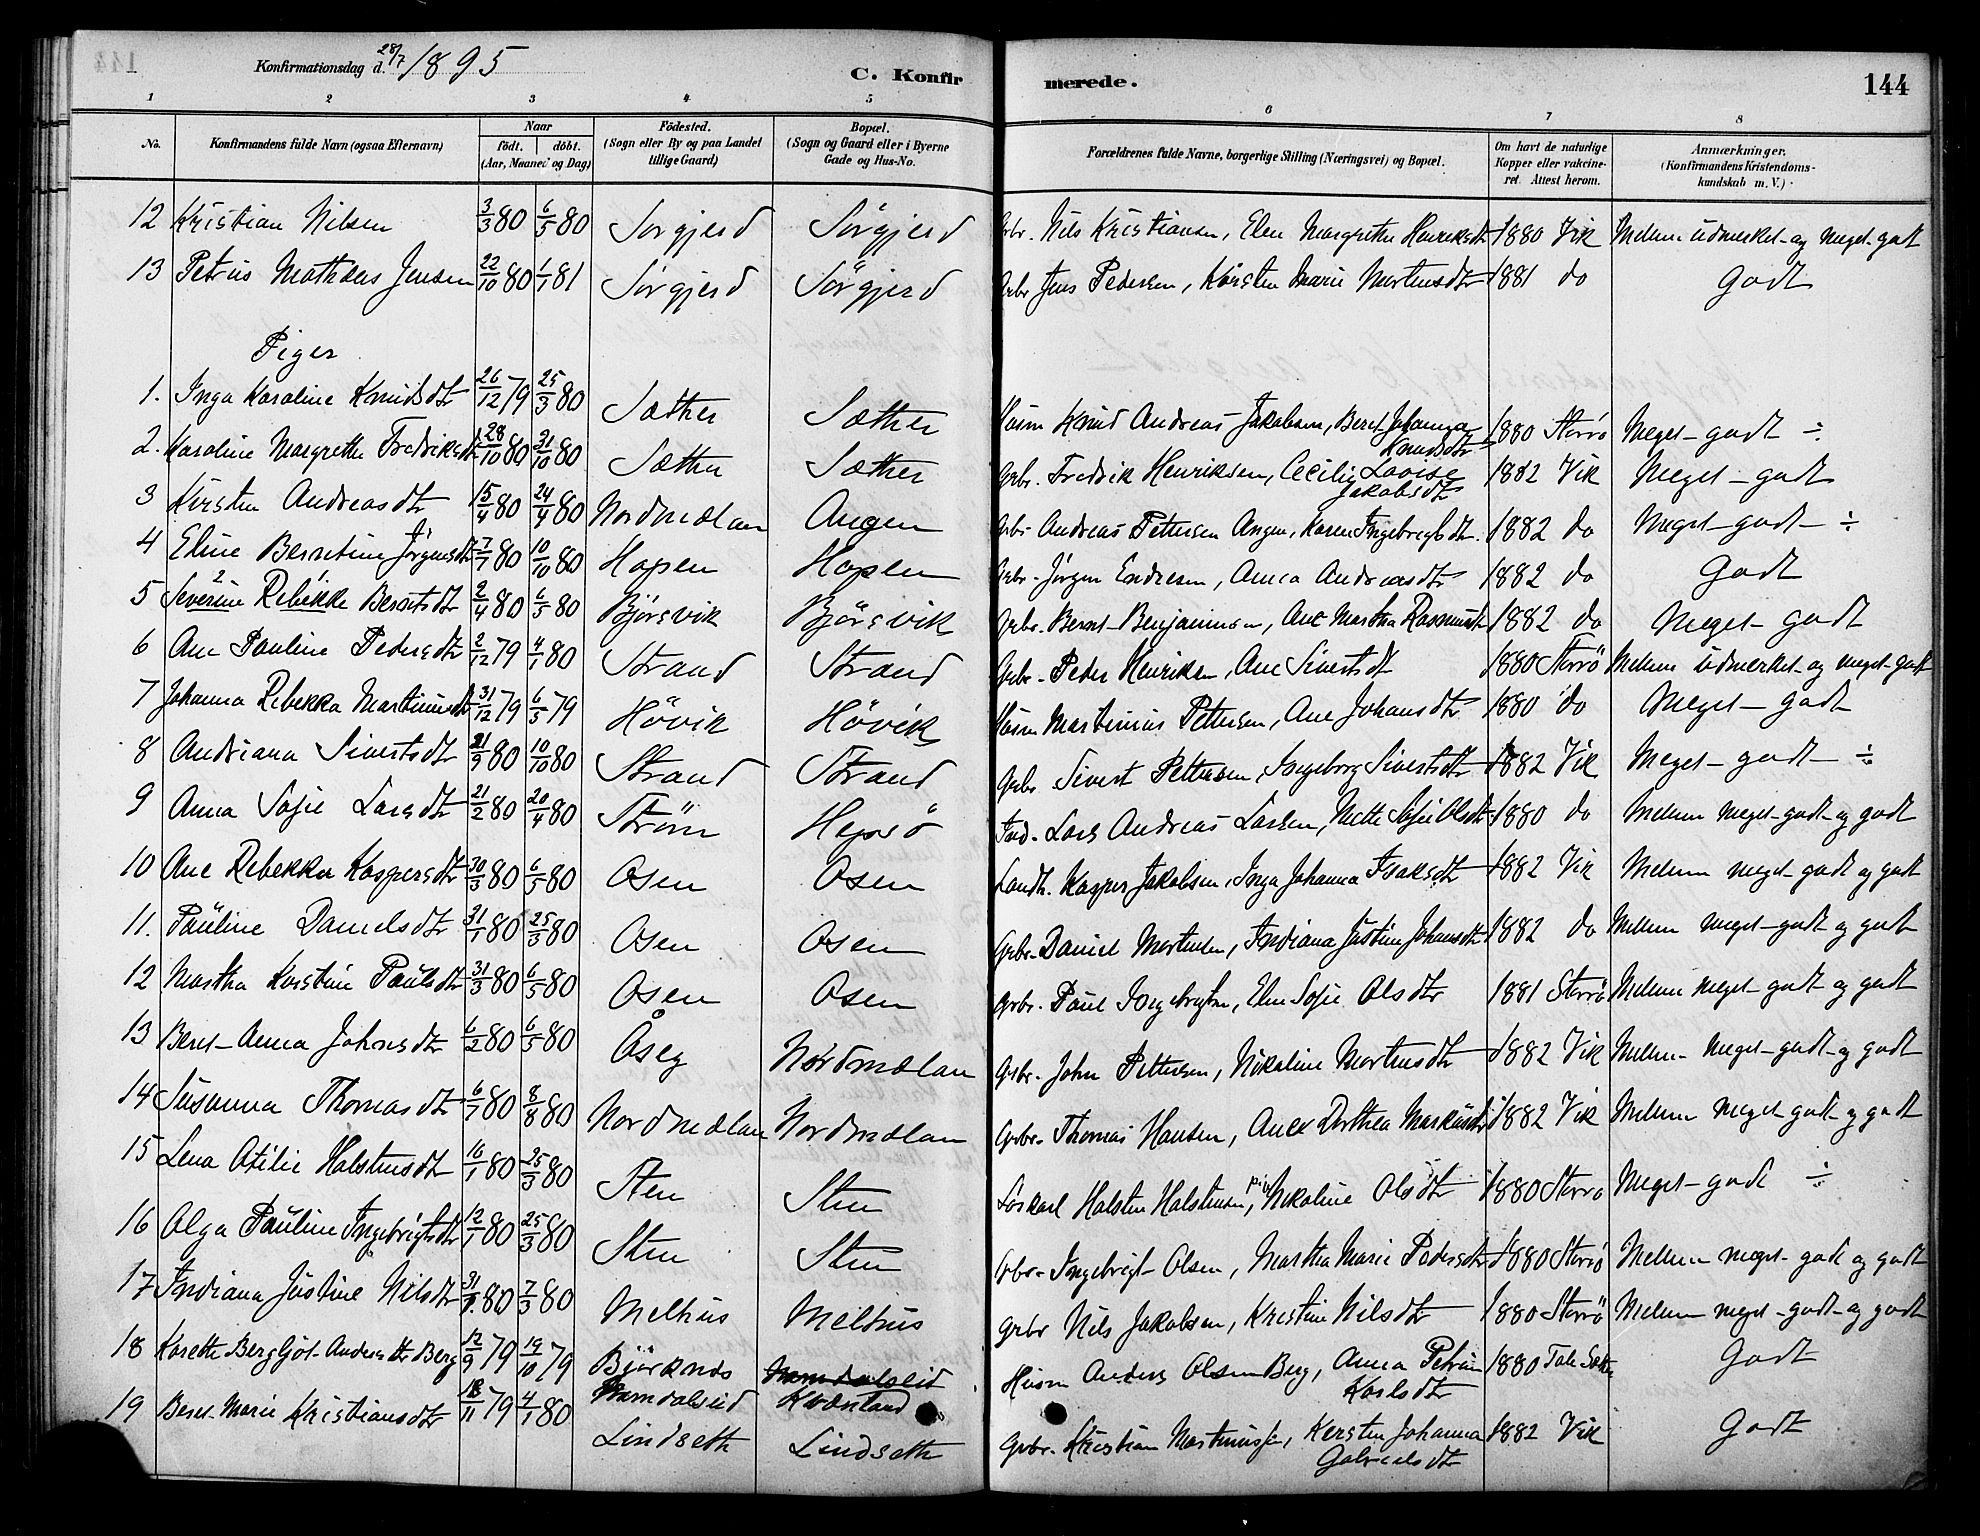 144
Konfirmationsdag d. 28/7 1895
C. Konfirmerede.
144
1 2 3 4 5 6 7 8
No. Konfirmandens fulde Navn (ogsaa Efternavn) Naar födt. döbt. (Aar, Maaned og Dag) Födested. (Sogn eller By og paa Landet tillige Gaard) Bopæl. (Sogn og Gaard eller i Byerne Gade og Hus-No. Forældrenes fulde Navne, borgerlige Stilling (Næringsvei) og Bopæl. Om havt de naturlige Kopper eller vakcineret. Attest herom. Anmærkninger. (Konfirmandens Kristendomskundskab m. V.)
12 Kristian Nilsen 3/3 80 6/5 80 Sörgjerd Sörgjerd Grbr. Nils Kristiansen, Elen Margrethe Henriksdtr 1880 Vik Mellem udmerket og meget godt
13 Petrus Mathæus Jensen 22/10 80 1/1 81 Sörgjerd Sörgjerd Grbr Jens Pedersen, Kirsten Marie Martinusdtr 1881 do Godt
Piger
1. Inga Karoline Knudsdtr 26/12 79 25/3 80 Sæther Sæther Husm Knud Andreas Jakobsen, Beret Johanna Knudsdtr 1880 Storrö Meget godt ÷
2. Karoline Margrethe Fredriksdtr 28/10 80 31/10 80 Sæther Sæther Grbr. Fredrik Henriksen, Cecilie Lovise Jakobsdtr 1882 Vik Meget godt
3 Kirsten Andreasdtr 15/4 80 24/4 80 Nordmælan Angen Grbr Andreas Pettersen Angen, Karen Ingebrigtsdtr. 1882 do Meget godt ÷
4 Eline Berntine Jörgensdtr 7/7 80 10/10 80 Hopen Hopen Grbr. Jörgen Endresen, Anna Andreasdtr 1882 do Godt
5 Severine Rebekke Berntsdtr 2/4 80 6/5 80 Björsvik Björsvik Grbr. Bernt Benjaminsen, Ane Martha Rasmusdtr 1882 do Meget godt
6 Ane Pauline Pedersdtr 2/12 79 4/1 80 Strand Strand Grbr. Peder Henriksen, Ane Sivertsdt 1880 Storrö Mellem udmerket og meget godt
7 Johanna Rebekka Martinusdtr 31/12 79 6/5 79 Hövik Hövik Husm Martinus Pettersen, Ane Johansdtr 1880 do Meget godt
8 Andriana Sivertsdtr 21/9 80 10/10 80 Strand Strand Grbr Sivert Pettersen, Ingeborg Sivertsdtr 1882 Vik Meget godt ÷
9 Anna Sofie Larsdtr 21/2 80 20/4 80 Ström Hepsö Ind. Lars Andreas Larsen, Mette Sofie Olsdtr 1880 do Mellem meget godt og godt
10 Ane Rebekka Kaspersdtr 30/3 80 6/5 80 Osen Osen Landh. Kasper Jakobsen, Inga Johanna Isaksdtr 1882 Vik Mellem meget godt og godt
11. Pauline Danielsdtr 31/1 80 25/3 80 Osen Osen Grbr. Daniel Martinsen, Indiana Justine Johansdtr 1882 do Mellem meget godt og godt
12 Martha Kirstine Paulsdtr 31/3 80 6/5 80 Osen Osen Grbr. Paul Ingebrigtsen, Elen Sofie Olsdtr 1881 Storrö Mellem meget godt og godt
13 Beret Anna Johnsdtr 6/2 80 6/5 80 Åseg Nordmælan Grbr. John Pettersen, Nikoline Martinusdtr 1882 Vik Mellem meget godt og godt
14 Susanna Thomasdtr 6/7 80 8/8 80 Nordmælan Nordmælan Grbr. Thomas Hansen, Ane Dorthea Markusdtr 1882 Vik Mellem meget godt og godt
15 Lena Otilie Halstensdtr 16/1 80 25/3 80 Sten Sten Löskarl Halsten Halstensen, pige Nikoline Olsdtr 1880 Storrö Meget godt ÷
16 Olga Pauline Ingebrigtsdtr 12/1 80 25/3 80 Sten Sten Grbr. Ingebrigt Olsen, Martha Marie Pedersdtr 1880 Storrö Mellem meget godt og godt
17 Indiana Justine Nilsdtr 31/1 80 7/3 80 Melhus Melhus Grbr Nils Jakobsen, Kristine Nilsdtr 1880 Storrö Mellem meget godt og godt
18 Karethe Bergljot Andersdtr Berg 12/9 79 19/10 79 Björknes Namdalseid Namdalseid Kvænland Husm Anders Olsen Berg, Anna Petrine Karlsdtr 1880 Godt
19 Beret Marie Kristiansdtr 18/11 79 4/1 80 Lindseth Lindseth Grbr. Kristian Martinusen, Kersten Johanna Gabrielsdtr 1882 Vik Godt